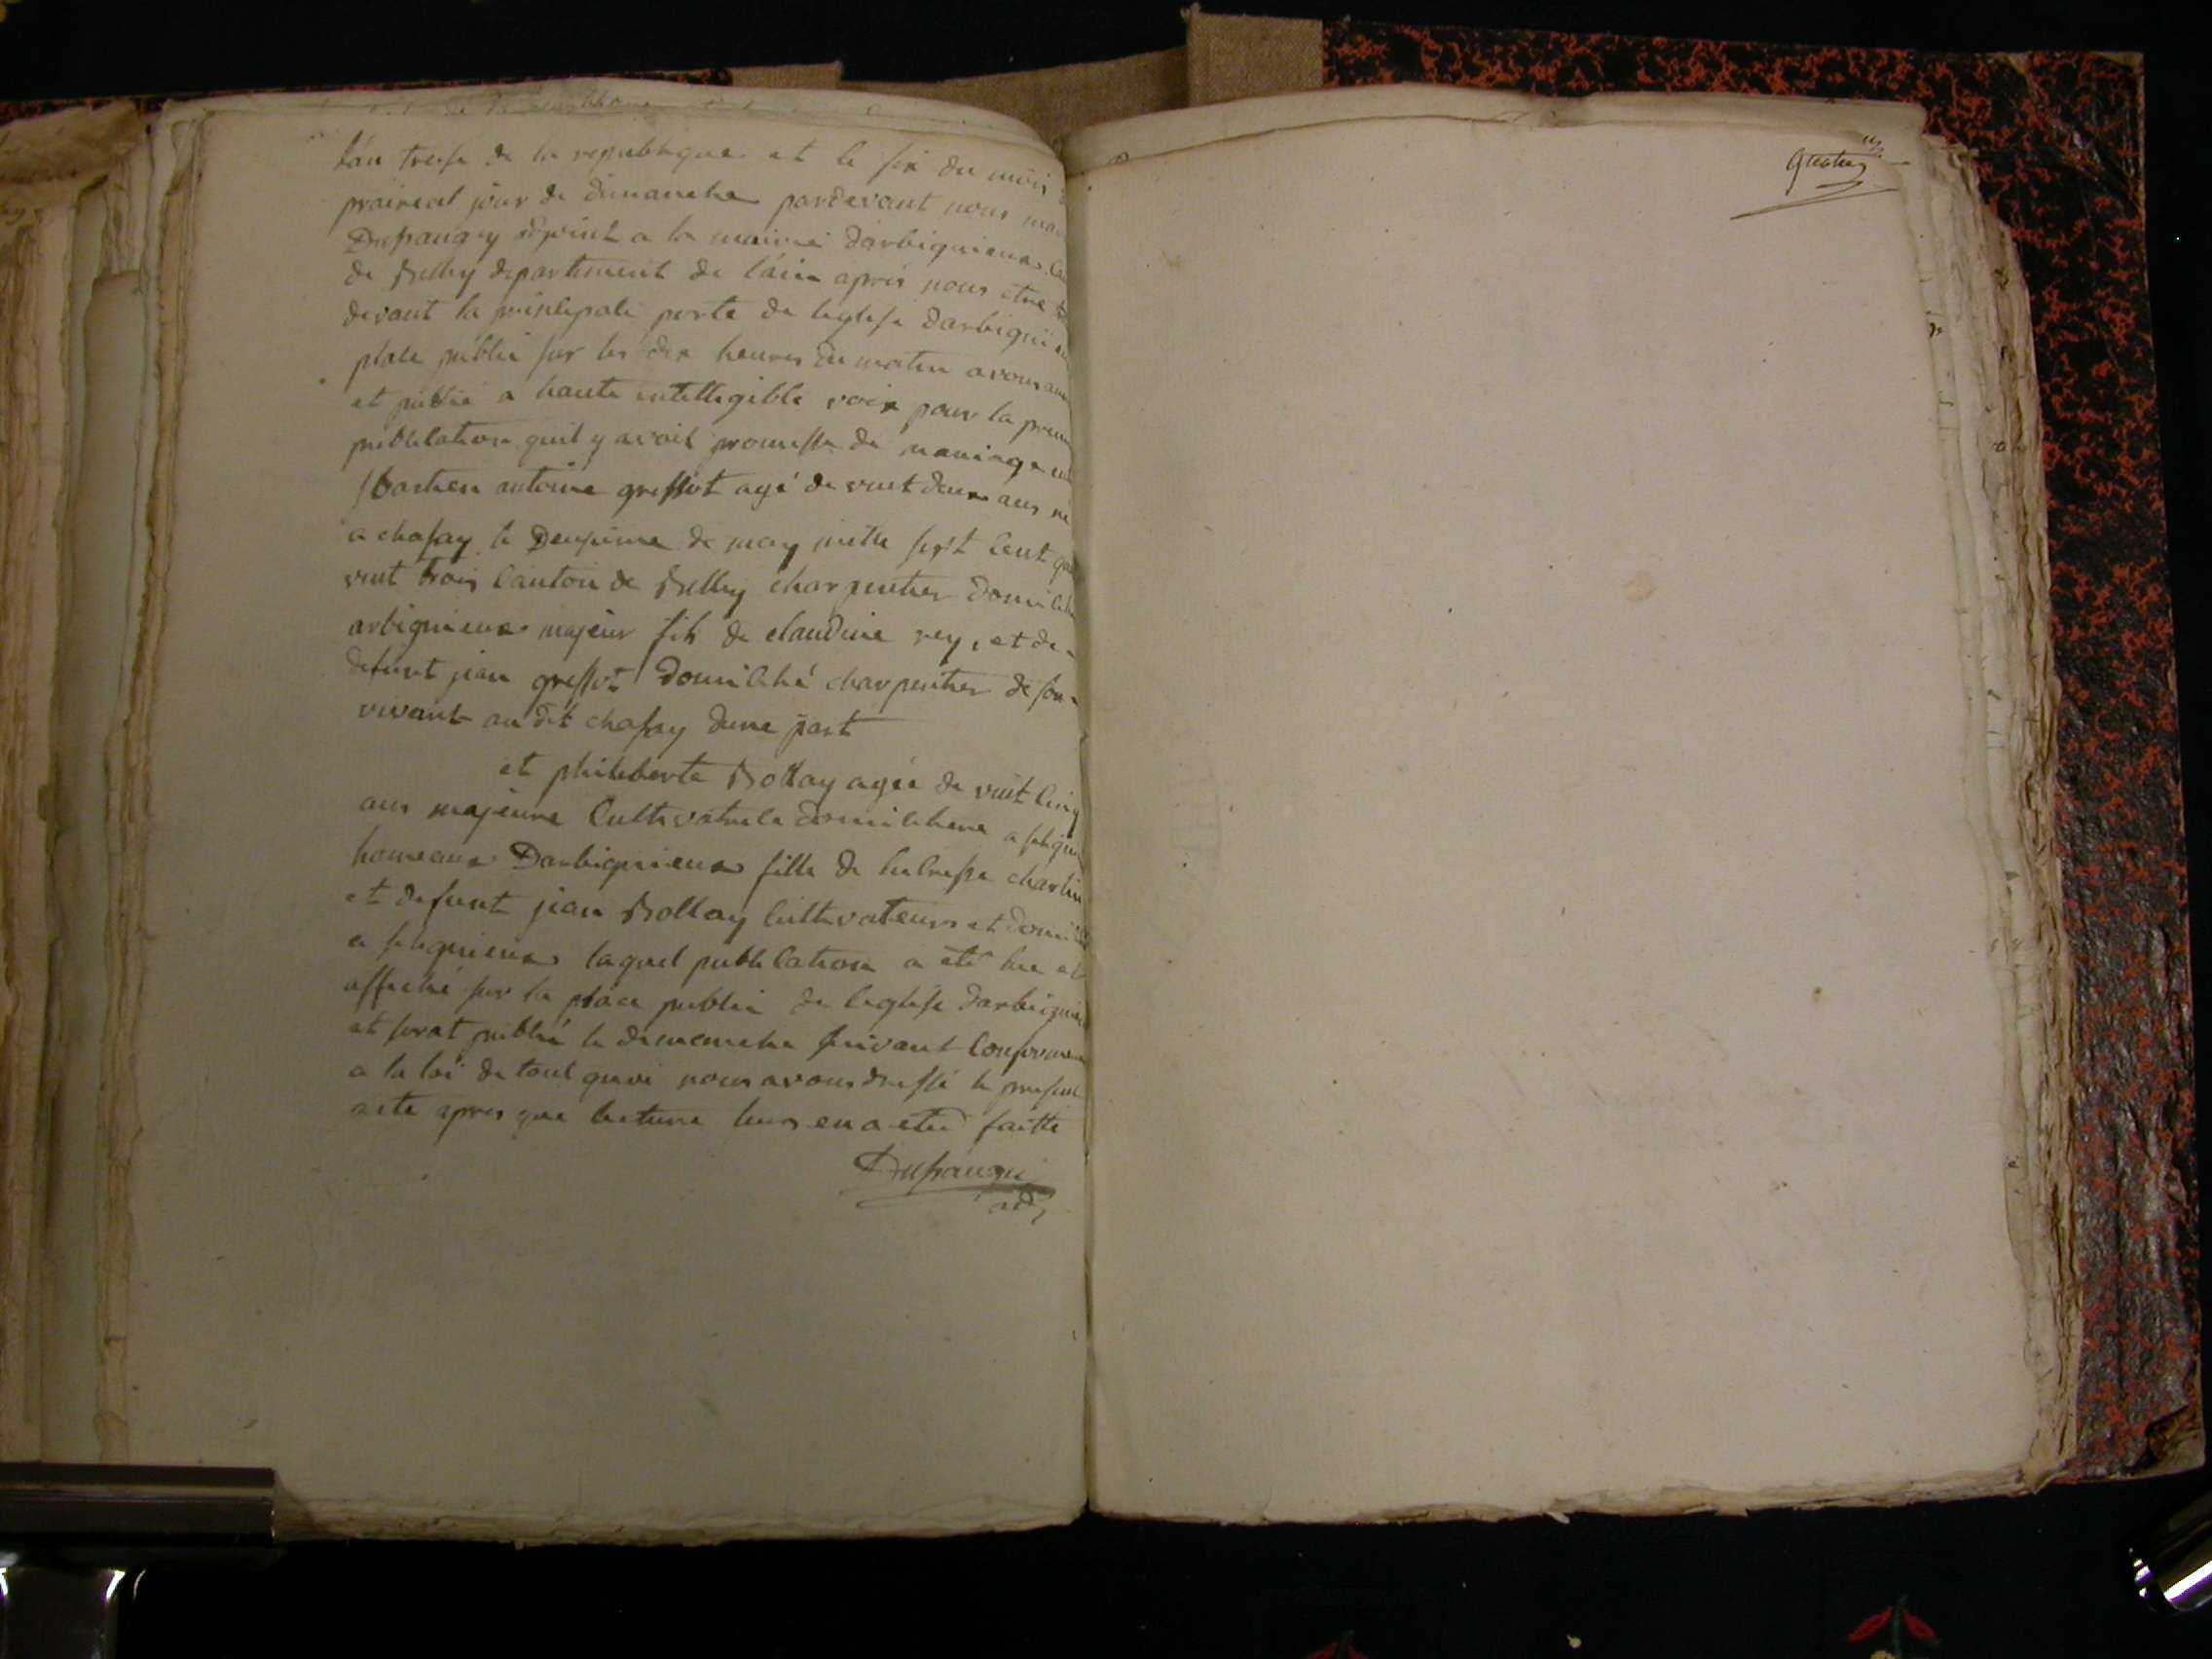 l'án treise de la republique et le six du mois
prairial jour de dimanche pardevant nous
Dupraugey adjoint a la mairie darbignieux
de Belley departement de l'áin aprés nous etre
devant la prinlepale porte de leglise darbignieu
place public sur les dix heures du matin avons
et publié a haute intelligible voix pour la
publication quil y avoit promesse de mariage
antoine gressot agé de vint deux ans né
a chasay le Deuxieme de may mille sept cent
vint trois Canton de Belley charpentier
arbignieux majeur fils de claudine rey, et de
defunt jean gressot domicilié charpentier de son
vivant au dit chasay dune part
et philiberte Bollay agée de vint cinq
ans majeure Cultivatrice domiciliere a
hameaux Darbignieux fille de
et defunt jean Bollay Cultivateurs et
a laquel publication a été lue et
affiché sur la place public de leglise darbignieu
et serat publié le dimanche suivant
a la loi de tout quoi nous avons dressé le present
acte apres que lecture leurs en a eté faitte
adj
quatre